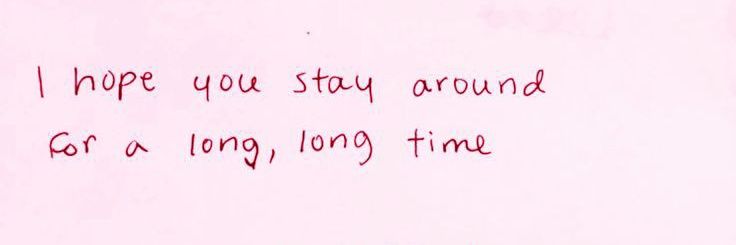 I hope you stay around
for a long, long time